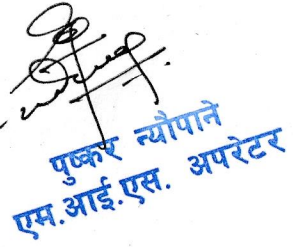 पुष्कर न्यौपाने
एम.आई.एस. अपरेटर